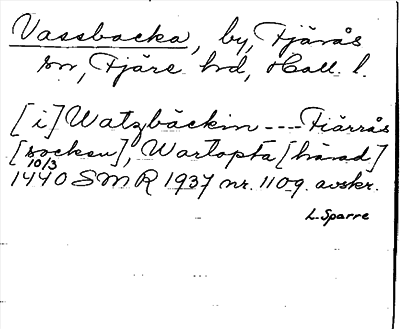 Vassbacka, by, Fjärås
sn, Fjäre hd, Hall. l.
[i] Watzbäckin ---- Fiärrås
[socken], Wartopta [härad]
10/3
1440 SMR 1937 nr. 1109. avskr.
L. Sparre